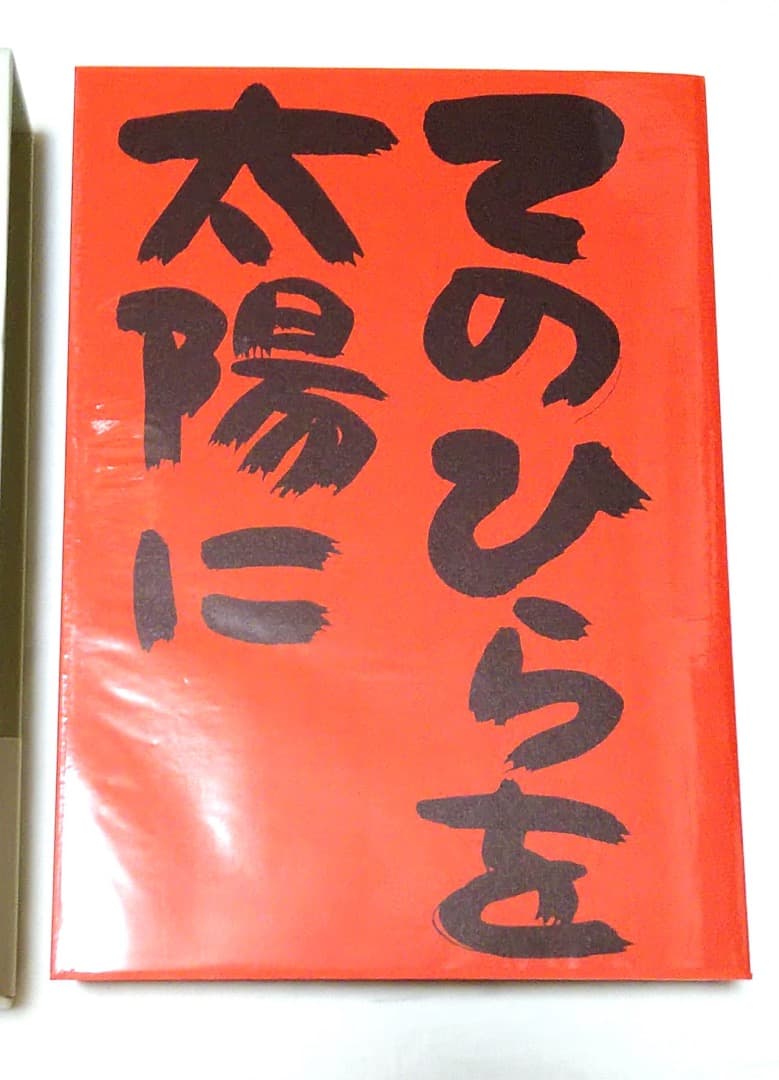 てのひらを
太陽に